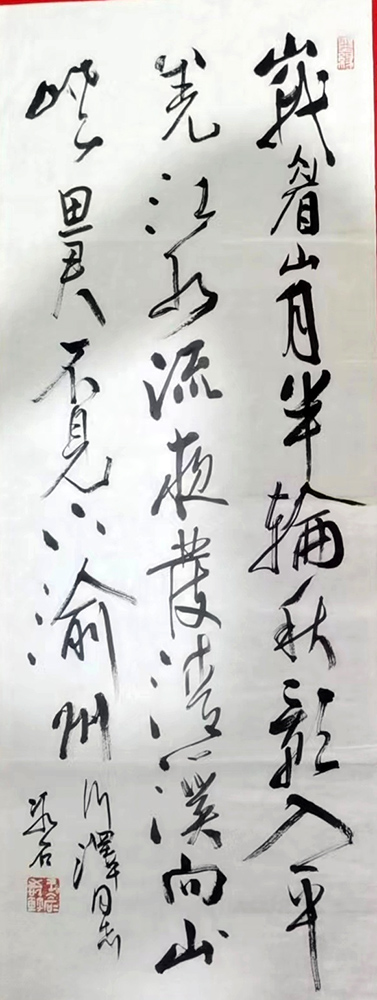 峨眉山月半輪秋影入平
羌江水流夜發清溪向山
峽思君不見下渝州
川澤同志
石